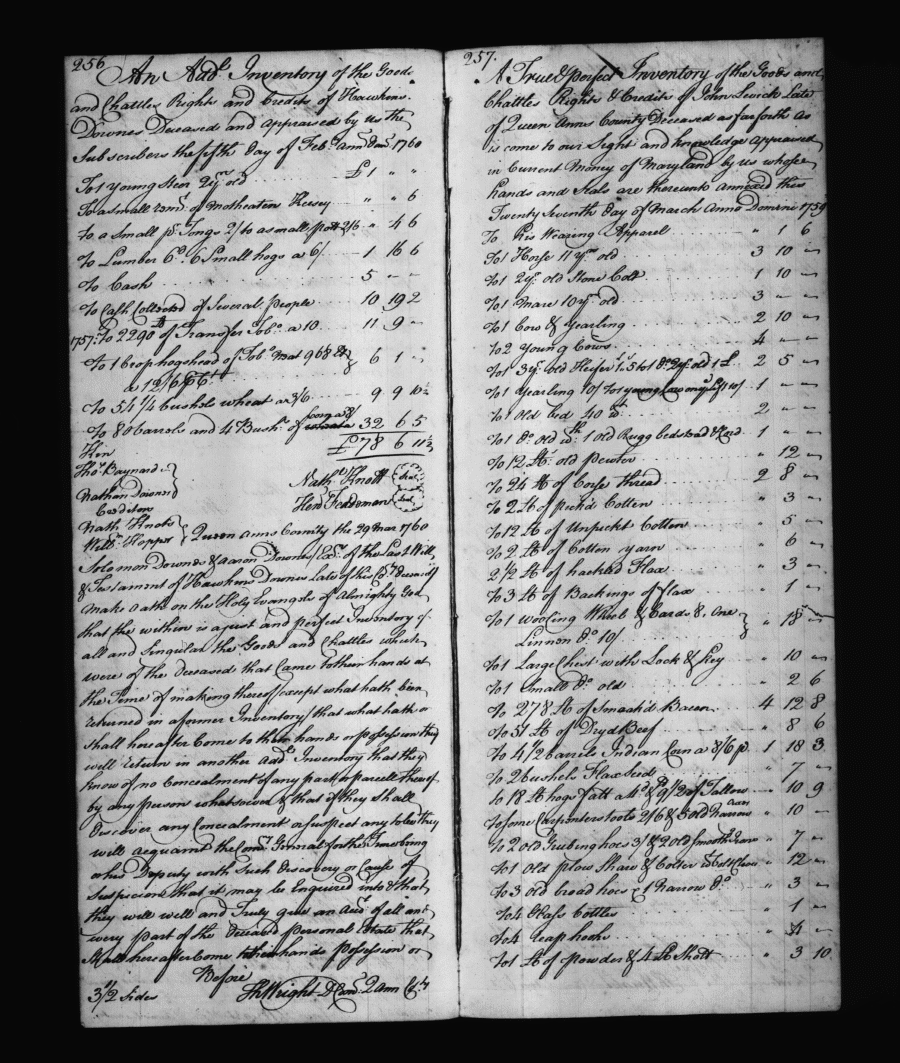 256
An Addl Inventory of the Goods
and Chattles Rights and Credits of Hawkins
Downes Deceased and appraised by us the
Subscribers the fifth day of Feby Anno Dom 1760
To 1 young Steer 2 yrs old £1 " "
To a small remt of Motheaten Kersey " " 6
To a small pr Tongs 2/ to a small pott 2/6 " 4 6
To Lumber 6d 6 Small hogs a 6/ 1 16 6
To Cash 5 " "
To Cash Collected of Several people 10 19 2
1757: To 2290 lb of Transfer Tobo a 10 11 9 "
To 1 Crop hogshead of Tobo Neat 968 lb 6 1 "
a 12/6
To 54 1/4 bushels wheat a 3/6 9 9 10 1/2
To 80 barrels and 4 Bushs of Corn a 8/ 32 6 5
£78 6 11 1/2
Kin
Thos Baynard
Nathan Downes
Creditors
Nath Knotts
Willm Hopper
Nathl Knott Seal
Henr Seal
Queen Anns County the 29 Mar 1760
Solomon Downes & Aaron Downes Exs of the Last Will
& Testament of Hawkins Downes Late of his Coty Deceased
make Oath on the Holy Evangels of Almighty God
that the within is a just and perfect Inventory of
all and Singular the Goods and Chattles which
were of the Deceased that Came to their hands at
the Time of making thereof except what hath been
returned in a former Inventory that what hath or
shall hereafter Come to their hands or possession they
will return in another Addl Inventory that they
know of no Concealment of any part or parcell thereof
by any person whatsoever & that if they shall
Discover any Concealment or suspect any to be they
will acquaint the Comy General for the Time being
or his Deputy with Such discovery or Cause of
Suspicion that it may be Enquired into & that
they will well and Truly give an Acct of all and
every part of the Deceaseds personal Estate that
Shall hereafter Come to their hands possession or
Before
3 1/2 Sides
Th Wright D Comy 2 Ann Coty
257.
A True & perfect Inventory of the Goods and
Chattles Rights & Credits of John Sewick Late
of Queen Anns County Deceased as far forth as
is come to our Sight and knowledge appraised
in Current Money of Maryland by us whose
hands and Seals are thereunto annexed this
Twenty Seventh day of March Anno Domini 1759
To His Wearing Apparel " 1 6
To 1 Horse 11 yrs old 3 10 "
To 1 2 yr old Stone Colt 1 10 "
To 1 Mare 10 yrs old 3 " "
To 1 Cow & Yearling 2 10 "
To 2 Young Cows 4 " "
To 1 3 yr old Heifer 1. 5 to 1 Do 2 yr old 1 £ 2 5 "
To 1 Yearling 10/ To 1 young Cow 10/ 1 " "
To 1 Old bed 40 wt 2 " "
To 1 Do old wth 1 old Rugg bedstead & Cord 1 " "
To 12 lb old pewter " 12 "
To 24 lb of Corse thread 2 8 "
To 2 lb of pick'd Cotten " 3 "
To 12 lb of Unpickt Cotten " 5 "
To 2 lb of Cotten yarn " 6 "
2 1/2 lb of hackled Flax " 3 "
To 3 lb of Backings of Flax " 1 "
To 1 Wooling Wheel & Cards 8. One " 18 "
Linnon Do 10/
To 1 Large Chest with Lock & Key " 10 "
To 1 Small Do old " 2 6
To 278 lb of Smoack'd Bacon 4 12 8
To 51 lb of Dryd Beef " 8 6
To 4 1/2 barrels Indian Corn a 8/6 p. 1 18 3
To 2 bushels Flax Seed " 7 "
To 18 lb hogs Fatt a 4d & 9 1/2 lb of Tallow " 10 9
To some Carpenters tools 2/6 & 3 old Narrow Axes " 10 "
To 2 old Grubing hoes 3/ & 2 old Smooth Irons " 7 "
To 1 old plow Share & Colter " 12 "
To 3 old broad hoes & 1 Narrow Do " 3 "
To 4 Glass bottles " 1 "
To 4 reap hooks " 4 "
To 1 lb of powder & 4 lb Shott " 3 10